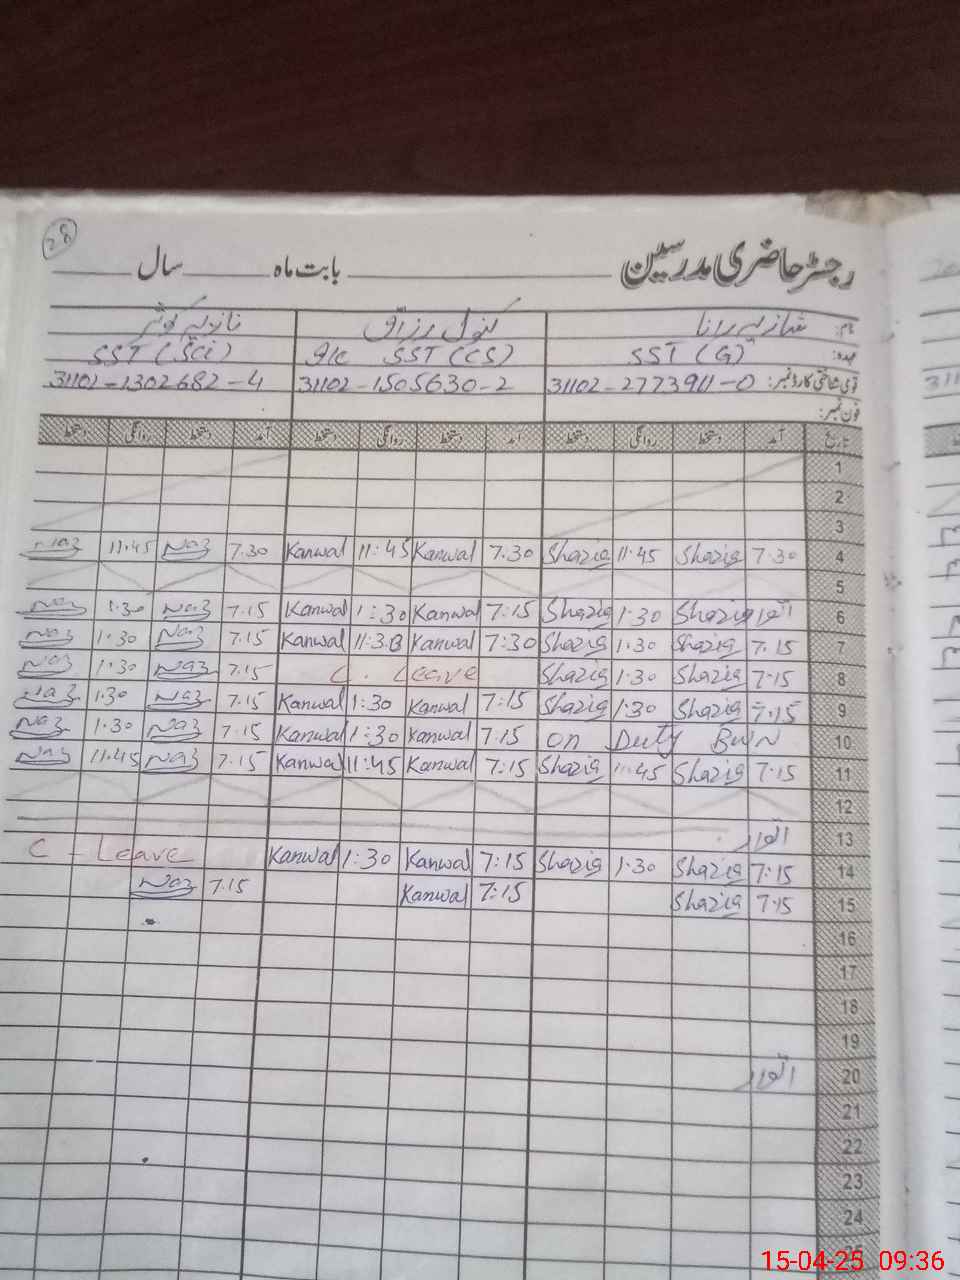 28
رجسٹر حاضری مدرسین ـــــــ بابت ماہ ـــــــ سال ـــــــ
نام: شازیہ رانا کنول رزاق نازیہ کوثر
عہدہ: SST (G) I/C SST (CS) SST (Sci)
قومی شناختی کارڈ نمبر: 31102-2773911-0 31102-1505630-2 31102-1302682-4
فون نمبر:
تاریخ آمد دستخط روانگی دستخط آمد دستخط روانگی دستخط آمد دستخط روانگی دستخط
1
2
3
Naz 11.45 Naz 7.30 Kanwal 11:45 Kanwal 7.30 Shazia 11.45 Shazia 7.30 4
5
Naz 1.30 Naz 7.15 Kanwal 1:30 Kanwal 7:15 Shazia 1.30 Shazia اتوار 6
Naz 1.30 Naz 7.15 Kanwal 11:30 Kanwal 7:30 Shazia 1.30 Shazia 7.15 7
Naz 1.30 Naz 7.15 C. Leave Shazia 1.30 Shazia 7.15 8
Naz 1.30 Naz 7.15 Kanwal 1:30 Kanwal 7:15 Shazia 1.30 Shazia 7.15 9
Naz 1.30 Naz 7.15 Kanwal 1:30 Kanwal 7:15 on Duty BWN 10
Naz 11.45 Naz 7.15 Kanwal 11:45 Kanwal 7:15 Shazia 11.45 Shazia 7.15 11
12
اتوار 13
C - Leave Kanwal 1:30 Kanwal 7:15 Shazia 1.30 Shazia 7.15 14
Naz 7.15 Kanwal 7:15 Shazia 7.15 15
16
17
18
19
اتوار 20
21
22
23
24
25
15-04-25 09:36